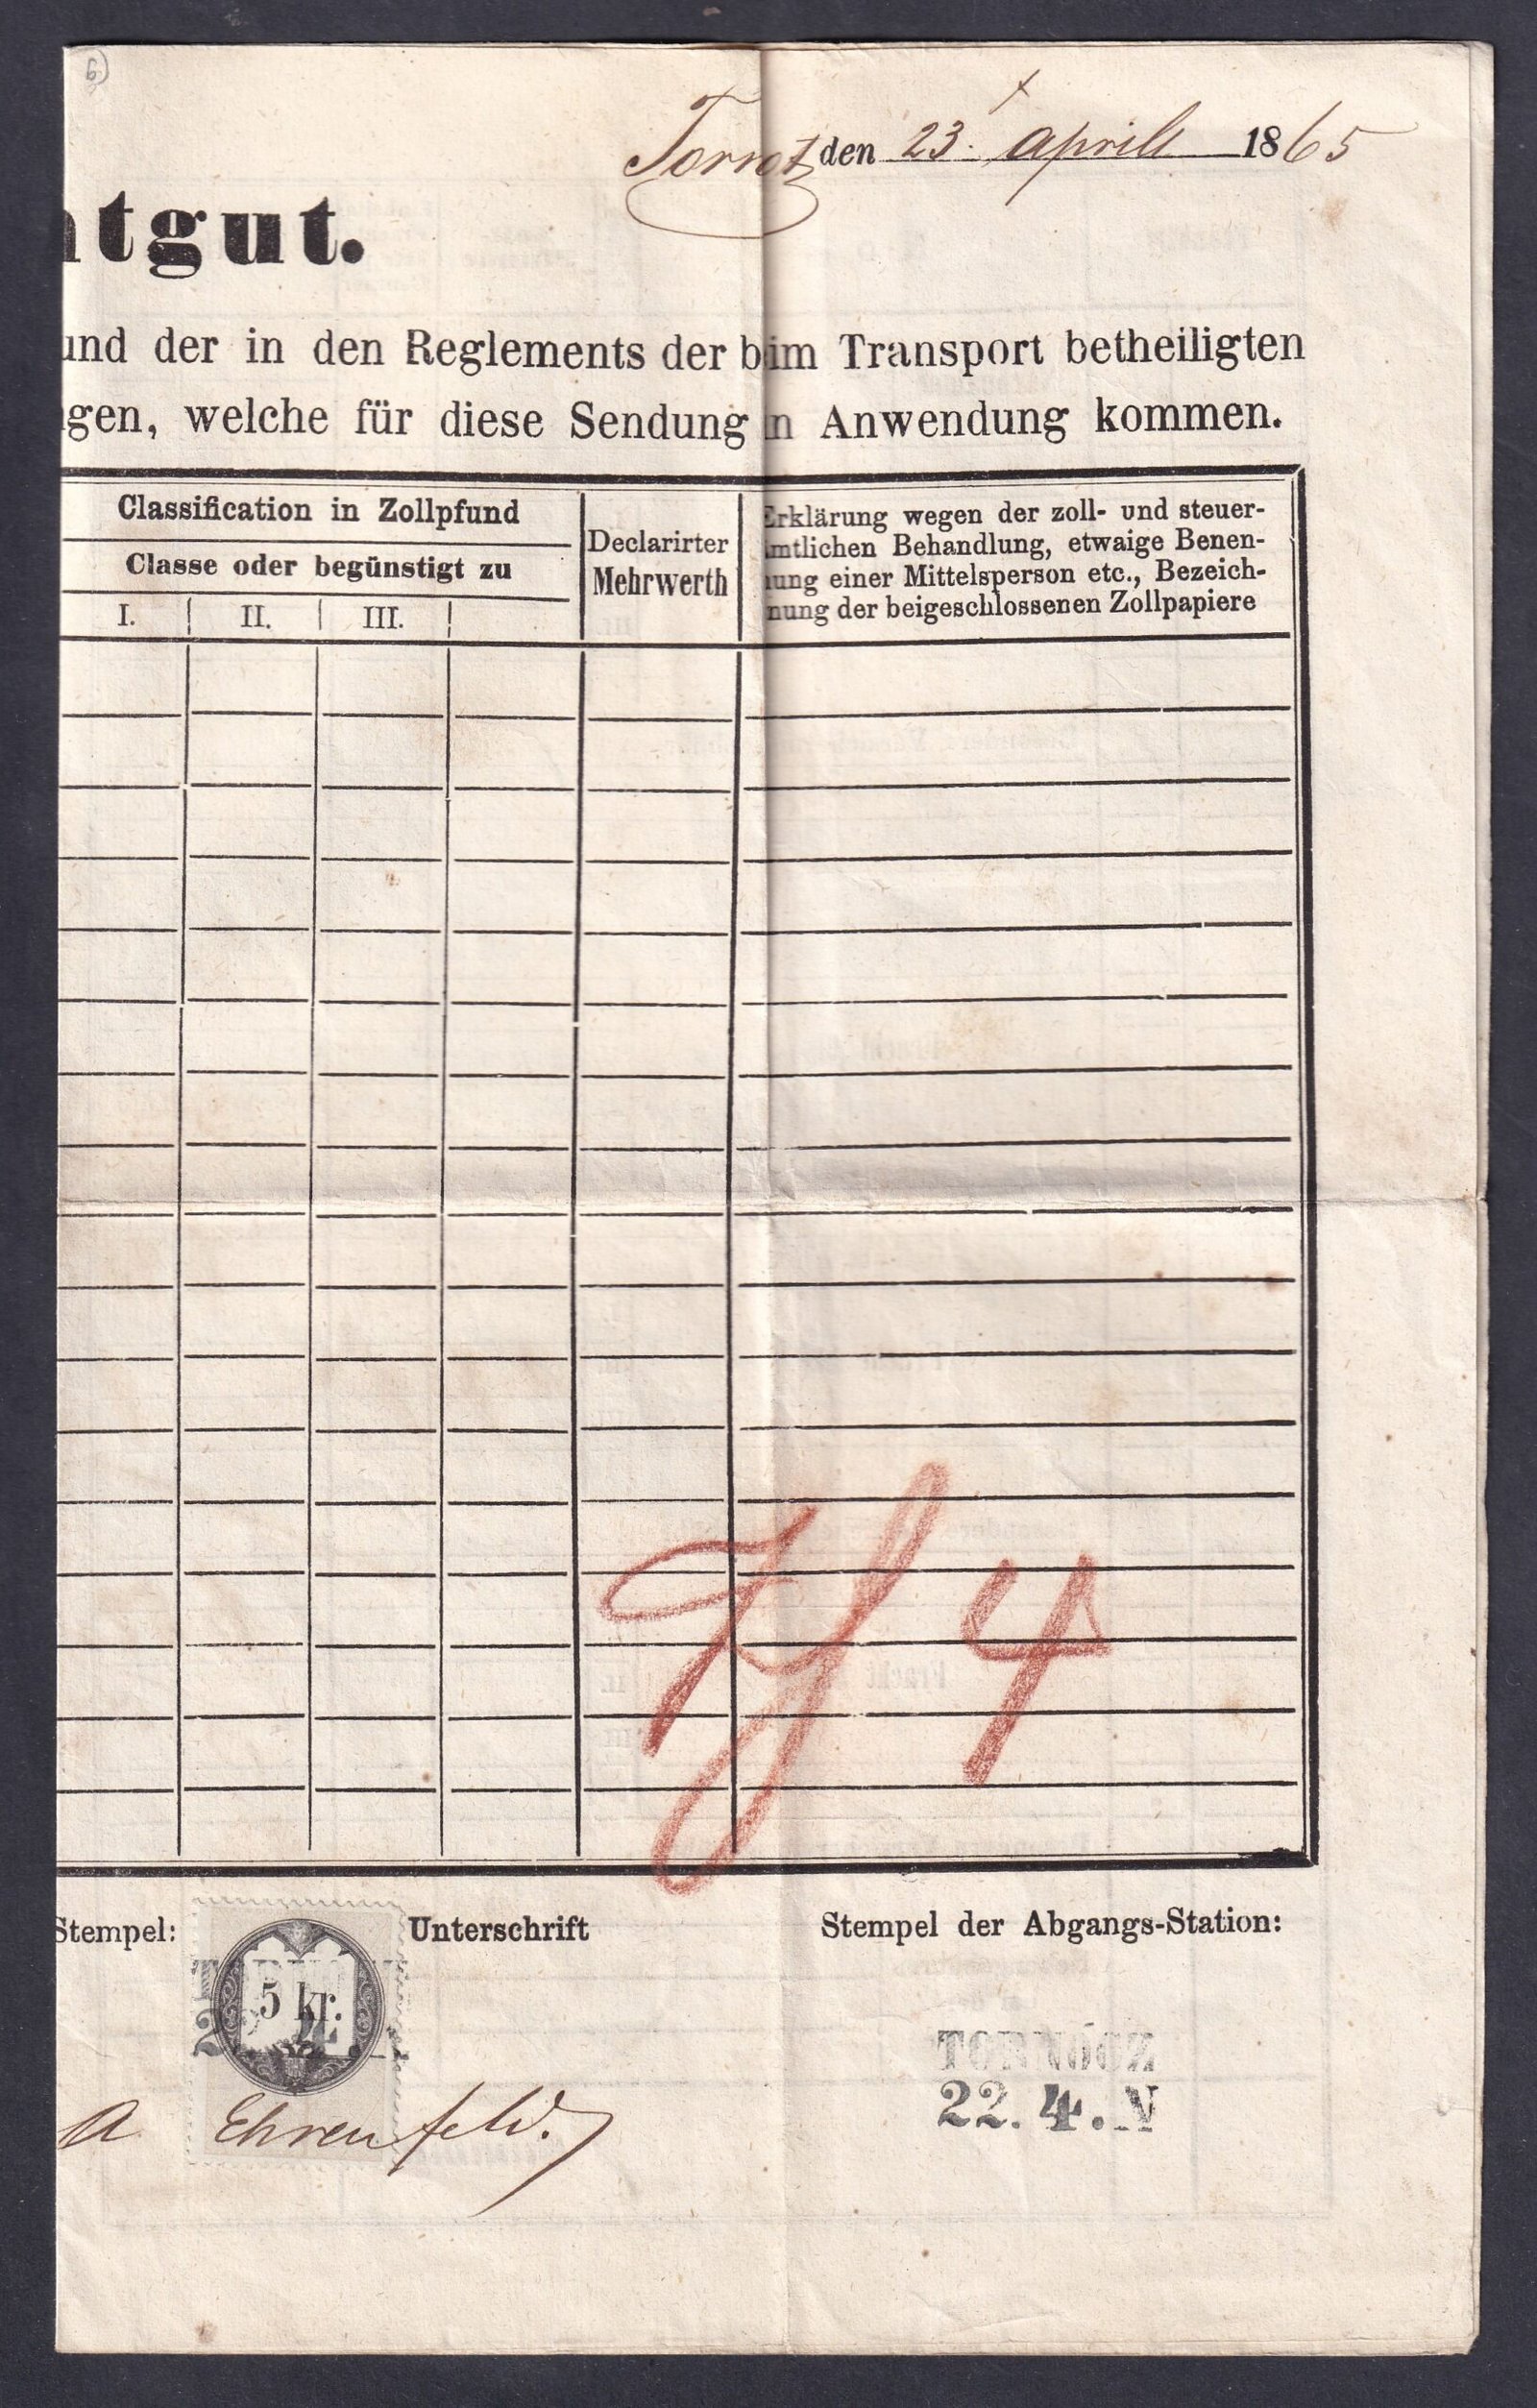 6)
Tornotz den 23. aprill 1865
tgut.
und der in den Reglements der beim Transport betheiligten
gen, welche für diese Sendung in Anwendung kommen.
Classification in Zollpfund
Classe oder begünstigt zu
I. II. III.
Declarirter
Mehrwerth
Erklärung wegen der zoll- und steuer-
amtlichen Behandlung, etwaige Benen-
nung einer Mittelsperson etc., Bezeich-
nung der beigeschlossenen Zollpapiere
4
Stempel:
5 kr.
Unterschrift
A Ehrenfeld.
Stempel der Abgangs-Station:
TORNÓCZ
22. 4. N